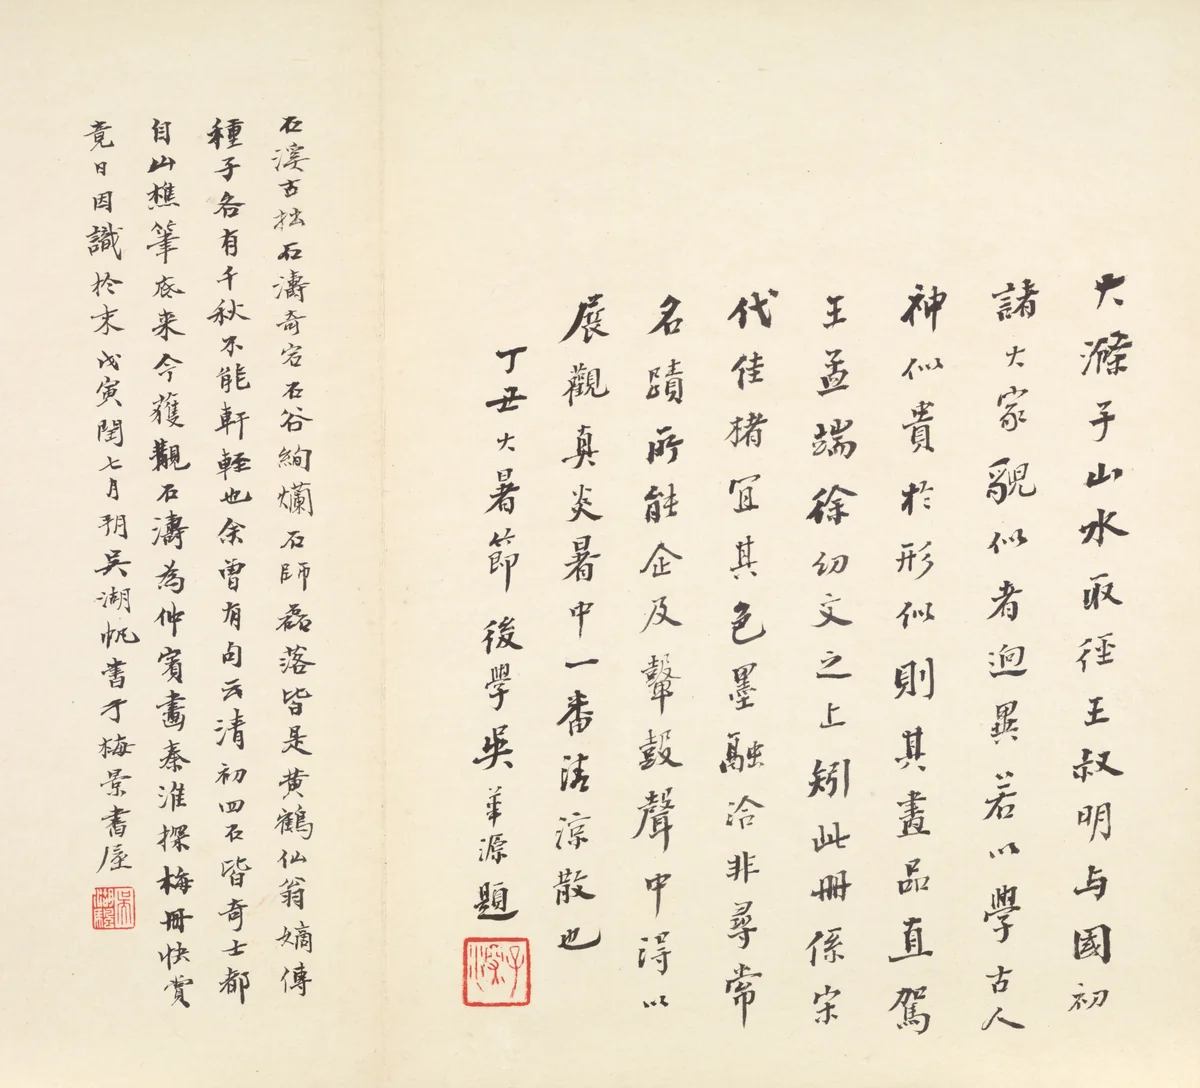 大滌子山水取徑王叔明与國初
諸大家貎似者迥異若以學古人
神似貴於形似則其畫品直駕
王孟端徐幼文之上矧此冊係宋
代佳楮宜其色墨融洽非尋常
名蹟所能企及鼙鼓聲中得以
展觀真炎暑中一番清涼散也
丁丑大暑節後學吳華源題
子深
石溪古拙石濤奇宕石谷絢爛石師磊落皆是黃鶴仙翁嫡傳
種子各有千秋不能軒輊也余曾有句云清初四石皆奇士都
自山樵筆底来今獲觀石濤為仲賓畫秦淮探梅冊快賞
竟日因識於末戊寅閏七月朔吳湖帆書于梅景書屋
吳湖颿